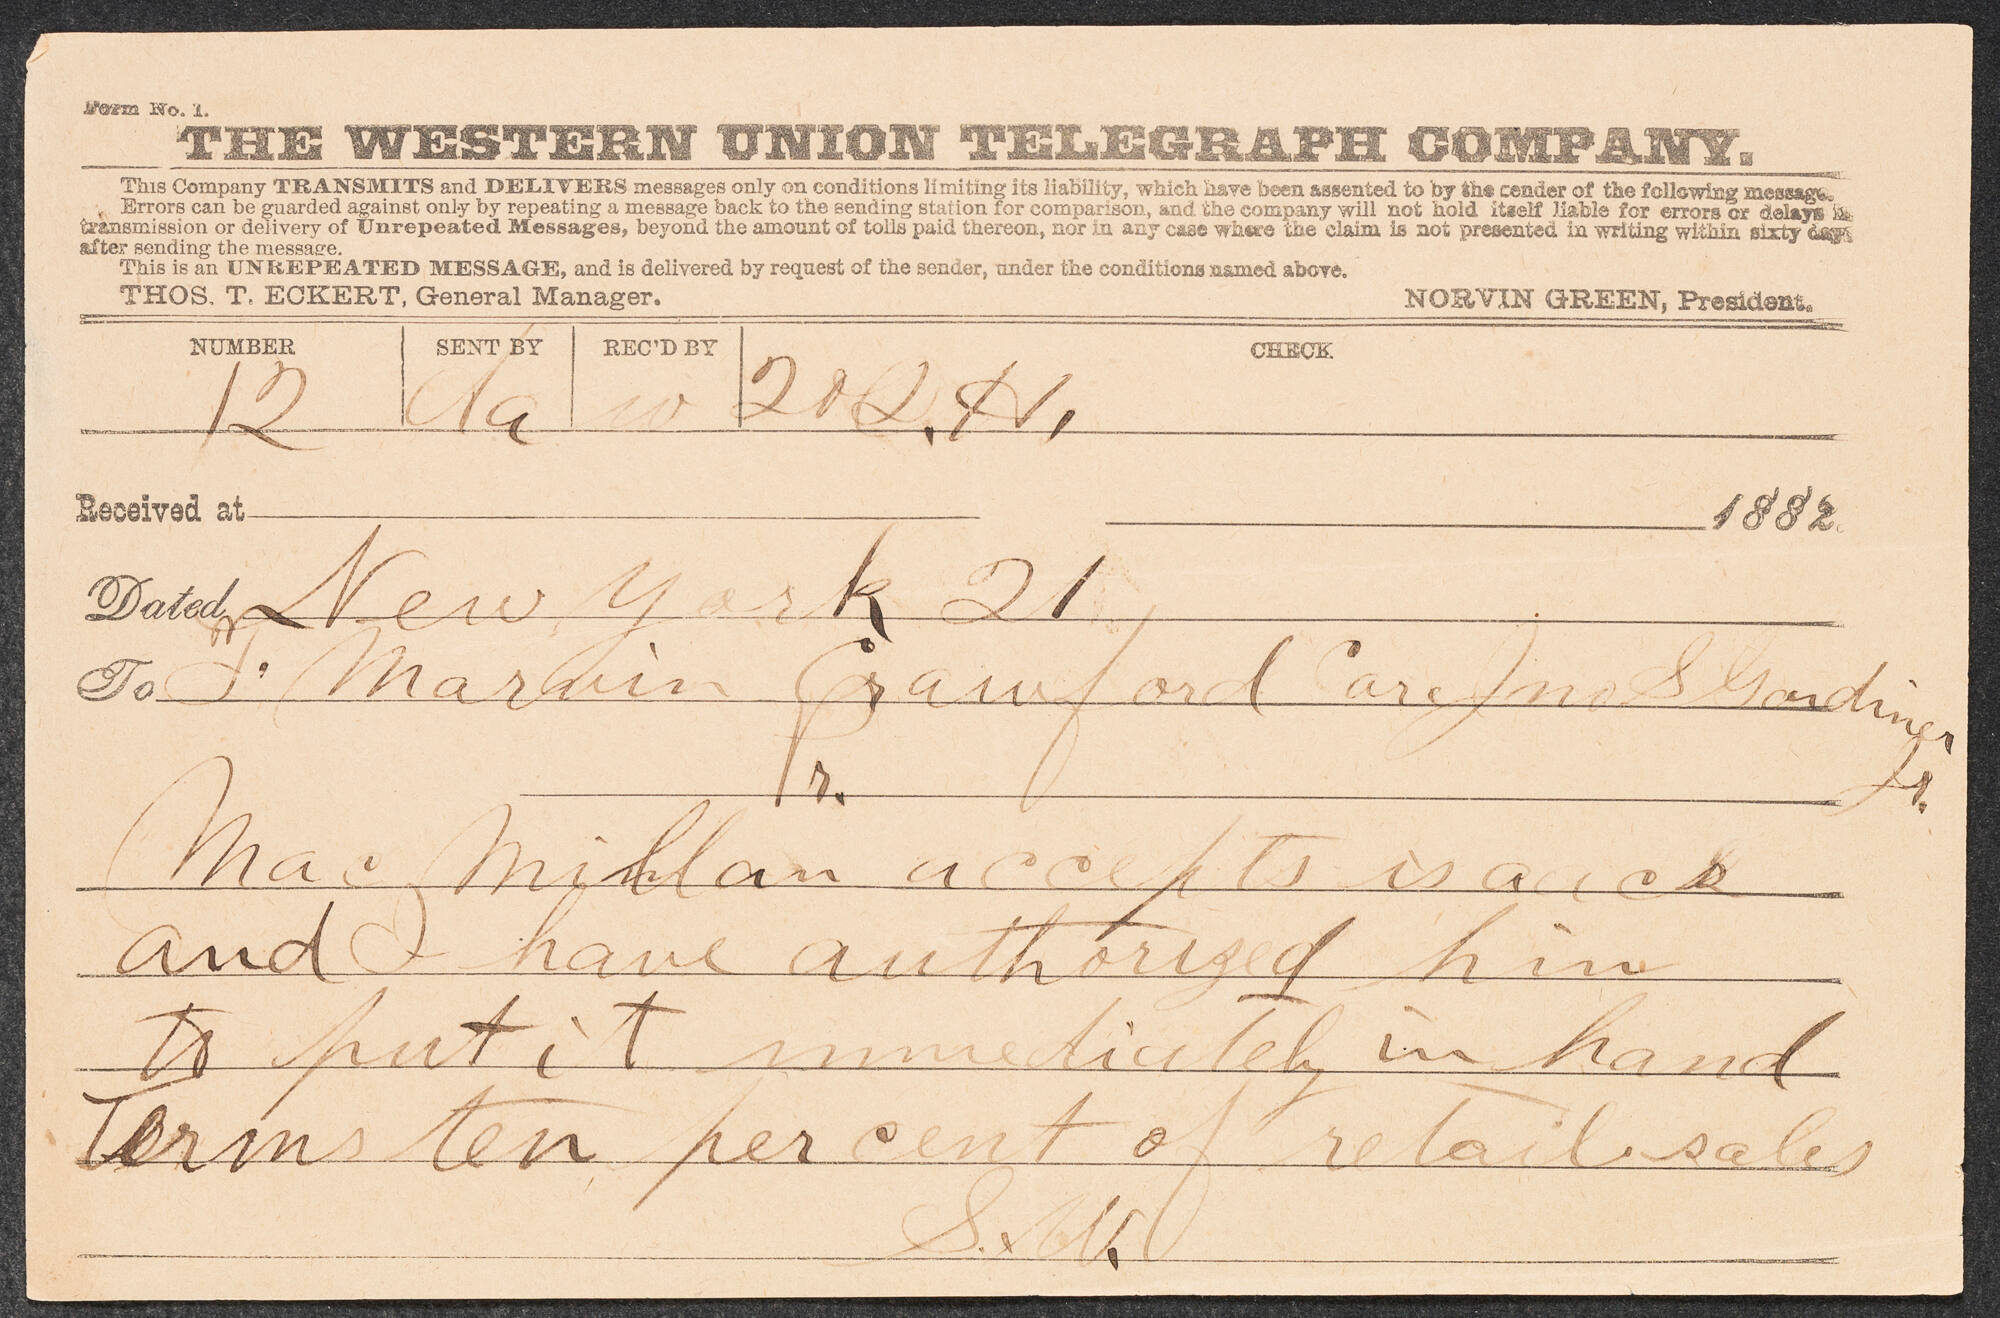 Form No. 1.
THE WESTERN UNION TELEGRAPH COMPANY.
This Company TRANSMITS and DELIVERS messages only on conditions limiting its liability, which have been assented to by the sender of the following message.
Errors can be guarded against only by repeating a message back to the sending station for comparison, and the company will not hold itself liable for errors or delays in
transmission or delivery of Unrepeated Messages, beyond the amount of tolls paid thereon, nor in any case where the claim is not presented in writing within sixty days
after sending the message.
This is an UNREPEATED MESSAGE, and is delivered by request of the sender, under the conditions named above.
THOS. T. ECKERT, General Manager. NORVIN GREEN, President.
NUMBER SENT BY REC'D BY CHECK
12 Na w 20 D.H.
Received at 1882.
Dated, New York 21
To F. Marion Crawford Care Jno S Gardiner
Jr.
Mac Millan accepts isaacs
and I have authorized him
to put it immediately in hand
Terms ten per cent of retail sales
S.W.